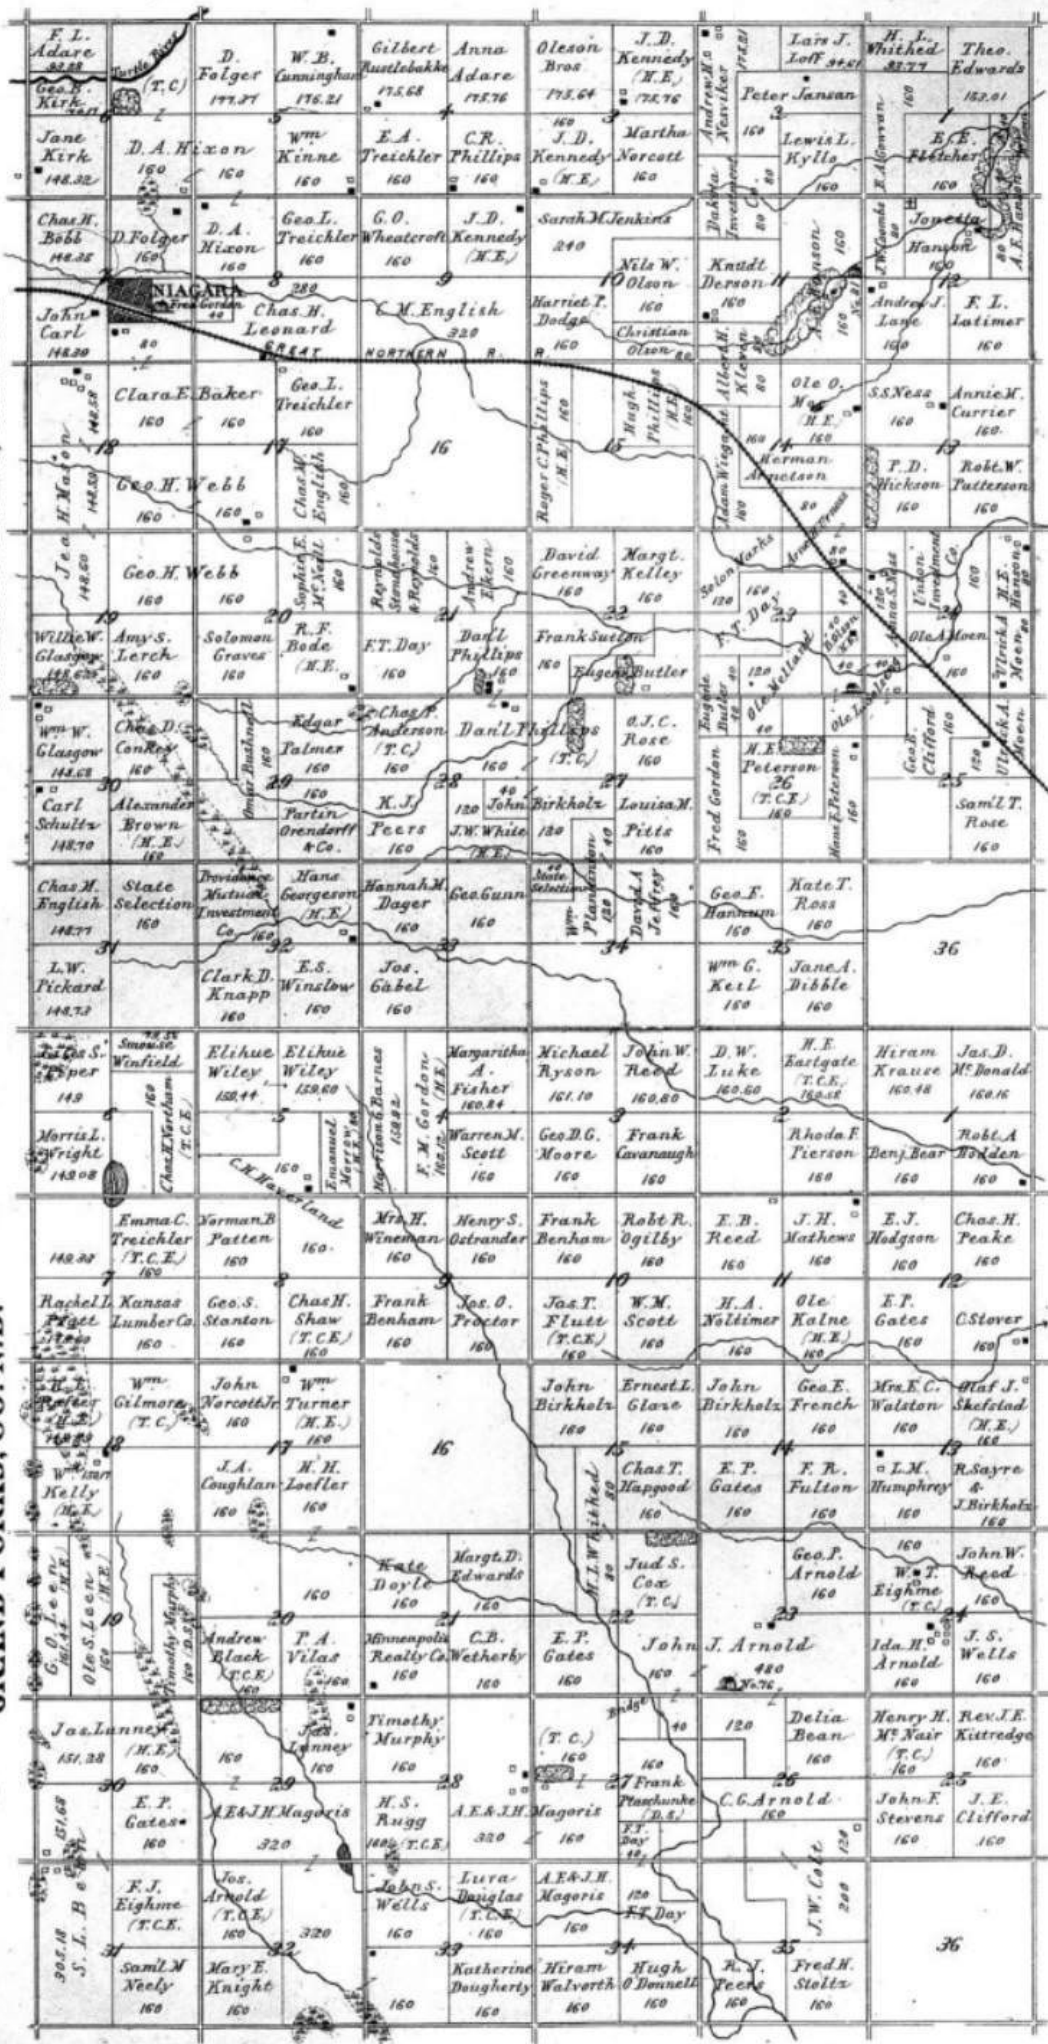 F. L.
Adare
93.28
Turtle River
Geo. B.
Kirk
(T.C.)
D.
Folger
177.37
W. B.
Cunningham
176.21
Gilbert
Rustlebakke
175.68
Anna
Adare
175.76
Oleson
Bros
175.64
J. D.
Kennedy
(H.E.)
175.76
Andrew H.
Nesviker
175.21
Lars J.
Loff 94.61
Peter Jansan
160
H. L.
Whithed
93.77
Theo.
Edwards
153.01
6
5
4
3
1
Jane
Kirk
148.32
D. A. Hixon
160
160
Wm
Kinne
160
E. A.
Treichler
160
C. R.
Phillips
160
160
J. D.
Kennedy
(H.E.)
Martha
Norcott
160
Dakota
Investment
Co.
80
80
Lewis L.
Kyllo
160
160
E. E.
Fletcher
160
Chas. H.
Bobb
148.35
D. Folger
160
D. A.
Hixon
160
Geo. L.
Treichler
160
G. O.
Wheatcroft
160
J. D.
Kennedy
(H.E.)
Sarah M. Jenkins
240
Nils W.
Olson
160
Knudt
Derson
160
160
J. W. Coombs
80
Jonetta
Hanson
160
A. E. Hanson
80
7
8
9
10
11
12
NIAGARA
Fred Gordon
40
John
Carl
148.39
80
280
Chas. H.
Leonard
C. M. English
320
Harriet P.
Dodge
160
Christian
Olson 80
Albert H.
Kleven
80
80
160
Andrew J.
Lane
160
F. L.
Latimer
160
GREAT NORTHERN R. R.
Jea H. Mason
148.58
148.59
148.60
Clara E. Baker
160
160
Geo. L.
Treichler
160
16
Roger C. Phillips
(H.E.)
160
Hugh
Phillips
(H.E.)
160
Adam Wiegant
160
160
Ole O.
Moe
(H.E.)
160
S. S. Ness
160
Annie M.
Currier
160
18
17
15
14
13
Geo. H. Webb
160
160
Chas. M.
English
160
Herman
Arnetson
80
P. D.
Hickson
160
Robt. W.
Patterson
160
Geo. H. Webb
160
160
Sophie E.
McNeill
160
Reynolds
Stonehouse
& Reynolds
160
Andrew
Ekern
160
David
Greenway
160
Margt.
Kelley
160
Solon Marks
120
160
80
Anna S. Ness
120
Union
Investment
Co.
160
H. E.
Hanson
80
19
20
22
23
Willie W.
Glasgow
Amy S.
Lerch
160
Solomon
Graves
160
R. F.
Bode
(H.E.)
F. T. Day
160
Dan'l
Phillips
160
Frank Sutton
160
Eugene Butler
F. T. Day
120
Ole Melland
40
Ole A. Moen
160
Ulrick A.
Moen
80
Wm W.
Glasgow
148.68
Chas. D.
Conkey
160
Omar Bushnell
160
Edgar
Palmer
160
Chas. P.
Anderson
(T.C.)
Dan'l Phillips
160
(T.C.)
O. J. C.
Rose
160
Eugene
Butler
40
40
H. E.
Peterson
(T.C.E.)
160
Ole L. Solberg
Geo. B.
Clifford
160
Ulrick A.
Moen
120
30
29
28
27
26
25
Carl
Schultz
148.70
Alexander
Brown
(H.E.)
160
Partin
Orendorff
& Co.
K. J.
Peers
160
120
40
John Birkholz
J. W. White
(H.E.)
120
40
Louisa M.
Pitts
160
Fred Gordon
160
Hans E. Peterson
160
Sam'l T.
Rose
160
Chas. M.
English
148.77
State
Selection
160
Providence
Mutual
Investment
Co. 160
Hans
Georgeson
(H.E.)
Hannah M.
Dager
160
Geo. Gunn
160
40
State
Selection
Wm
Plankinton
120
David A.
Jeffrey
160
Geo. E.
Hannum
160
Kate T.
Ross
160
31
32
33
34
35
36
L. W.
Pickard
148.73
Clark D.
Knapp
160
E. S.
Winslow
160
Jos.
Gabel
160
Wm G.
Keil
160
Jane A.
Dibble
160
149
Smouse
Winfield
Elihue
Wiley
159.44
Elihue
Wiley
159.60
Harrison G. Barnes
159.82
F. M. Gordon
(H.E.)
160.12
Margaritha
A.
Fisher
160.24
Michael
Ryson
161.10
John W.
Reed
160.80
D. W.
Luke
160.60
H. E.
Eastgate
(T.C.E.)
160.56
Hiram
Krause
160.48
Jas. D.
McDonald
160.16
6
5
4
3
2
1
Morris L.
Wright
149.08
Chas. H. Northam
(T.C.E.)
160
C. H. Haverland
160
160
Emanuel
Morrow
(H.E.) 80
Warren M.
Scott
160
Geo. D. G.
Moore
160
Frank
Cavanaugh
160
Rhoda F.
Pierson
160
Benj. Bear
160
Robt. A
Hodden
160
149.33
Emma C.
Treichler
(T.C.E.)
160
Norman B
Patten
160
Mrs. H.
Wineman
160
Henry S.
Ostrander
160
Frank
Benham
160
Robt R.
Ogilby
160
E. B.
Reed
160
J. H.
Mathews
160
E. J.
Hodgson
160
Chas. H.
Peake
160
7
8
9
10
11
12
Rachel L.
Pratt
Kansas
Lumber Co.
160
Geo. S.
Stanton
160
Chas H.
Shaw
(T.C.E.)
160
Frank
Benham
160
Jos. O.
Proctor
160
Jas. T.
Flutt
(T.C.E.)
160
W. M.
Scott
160
H. A.
Noltimer
160
Ole
Kalne
(H.E.)
160
E. P.
Gates
160
C. Stover
160
Wm
Gilmore
(T.C.)
John
Norcott Jr.
160
Wm
Turner
(H.E.)
160
16
John
Birkholz
160
Ernest L.
Glaze
160
John
Birkholz
160
Geo. E.
French
160
Mrs. E. C.
Walston
160
Olaf J.
Skefstad
(H.E.)
160
18
17
15
14
13
Wm
Kelly
(H.E.)
J. A.
Coughlan
160
H. H.
Loefler
160
M. L. Whithed
80
80
Chas. T.
Hapgood
160
E. P.
Gates
160
F. R.
Fulton
160
L. M.
Humphrey
160
R. Sayre
&
J. Birkholz
160
G. O. Leen
161.44 (H.E.)
Ole S. Leen
160 (H.E.)
Timothy Murphy
160 (D.S.)
160
Kate
Doyle
160
Margt. D.
Edwards
160
Jud S.
Cox
(T.C.)
Geo. P.
Arnold
160
160
W. T.
Eighme
(T.C.)
John W.
Reed
160
19
20
21
22
23
24
Andrew
Black
(T.C.E.)
160
P. A.
Vilas
160
Minneapolis
Realty Co.
160
C. B.
Wetherby
160
E. P.
Gates
160
John J. Arnold
160
480
No. 76
Ida H.
Arnold
160
J. S.
Wells
160
Jas. Lunney
151.28
(H.E.)
160
160
Jas.
Lunney
160
Timothy
Murphy
160
(T.C.)
160
Bridge
40
160
120
Delia
Bean
160
Henry H.
McNair
(T.C.)
160
Rev. J. E.
Kittredge
160
30
29
28
27
26
25
151.68
E. P.
Gates
160
A. E. & J. H. Magoris
320
H. S.
Rugg
160 (T.C.E.)
A. E. & J. H. Magoris
320
160
Frank
Plaschunke
(D.S.)
F. T.
Day
40
C. G. Arnold
160
John F.
Stevens
160
J. E.
Clifford
160
305.18
F. J.
Eighme
(T.C.E.
Jos.
Arnold
(T.C.E.)
160
320
John S.
Wells
160
Lura
Douglas
(T.C.E.)
160
A. E. & J. H.
Magoris
160
120
F. T. Day
J. W. Colt
200
120
31
32
33
34
35
36
Sam'l M
Neely
160
Mary E.
Knight
160
160
Katherine
Dougherty
160
Hiram
Walvorth
160
Hugh
O'Donnell
160
R. J.
Peers
160
Fred H.
Stoltz
160